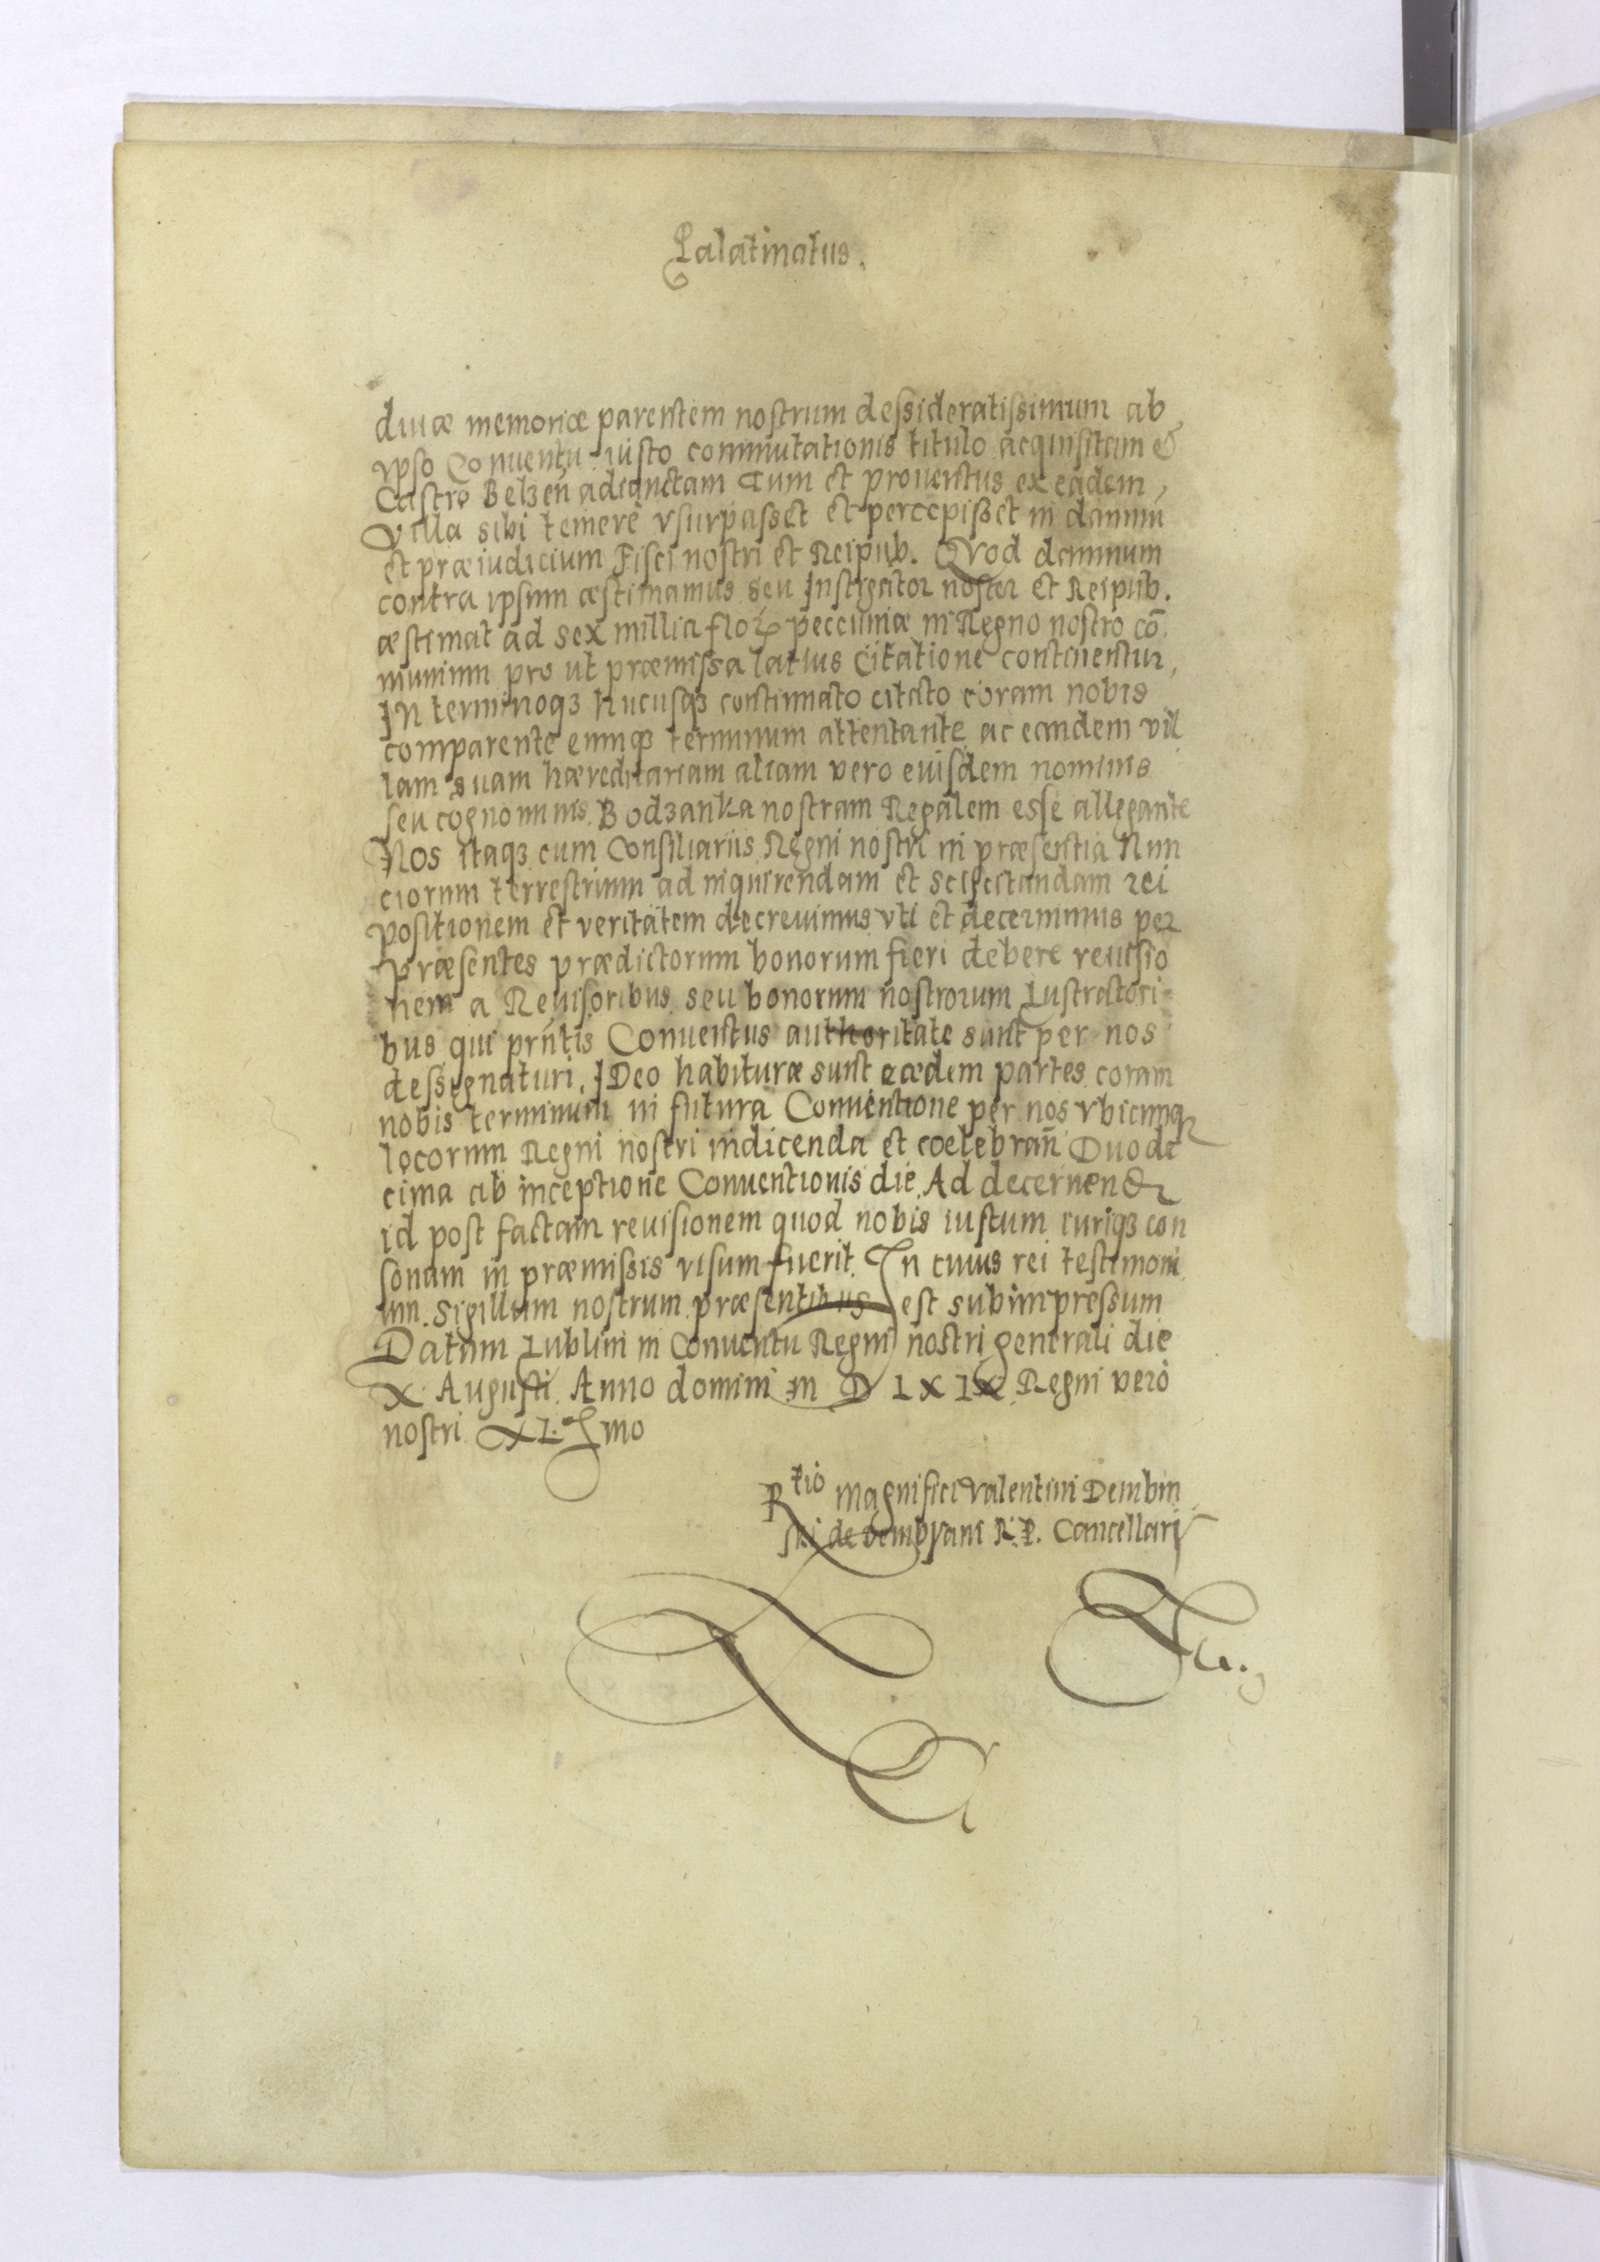 Palatinatus.
diuæ memoriæ parentem nostrum dessideratissimum ab
ypso Conuentu iusto commutationis titulo acquisitam &
Castro Belzen̄ adiunctam Tum et prouentus ex eadem,
Villa sibi temere vsurpasset et percepisset in damnu
et præiudicium Fisci nostri et Reipub. Quod damnum
contra ipsum æstimamus seu Instigator noster et Reipub.
æstimat ad sex millia floꝝ pecciuniæ in Regno nostro cō
munium pro ut præmissa latius Citatione continentur,
In terminoqꝫ hucusqꝫ continuato citato coram nobis
comparente eumqꝫ terminum attentante ac eandem vil
lam suam hæreditariam aliam vero euisdem nominis
seu cognominis Bodzanka nostram Regalem esse allegante
Nos itaqꝫ cum Consiliariis Regni nostri in præsentia Nun
ciorum terrestrium ad inquirendam et sciscitandam rei
positionem et veritatem decreuimus vti et decernimus per
præsentes prædictorum bonorum fieri debere reuisio
nem a Reuisoribus seu bonorum nostrorum Lustratori-
bus qui prn̄tis Conuentus authoritate sunt per nos
dessignaturi, IDeo habituræ sunt eædem partes coram
nobis terminum in futura Conuentione per nos vbicunqꝫ
locorum Regni nostri indicenda et coelebran̄ Duode
cima ab inceptione Conuentionis die Ad decernend
id post factam reuisionem quod nobis iustum iuriqꝫ con
sonam in præmissis visum fuerit. In cuius rei testimoni
um Sigillum nostrum præsentibus est subimpressum
Datum Lublini in Conuentu Regni nostri generali die
X Augusti Anno domini M D LXIX Regni vero
nostri XL mo
Rtio Magnifici Valentini Dembin
ski de Dembyani R. P. Cancellarij